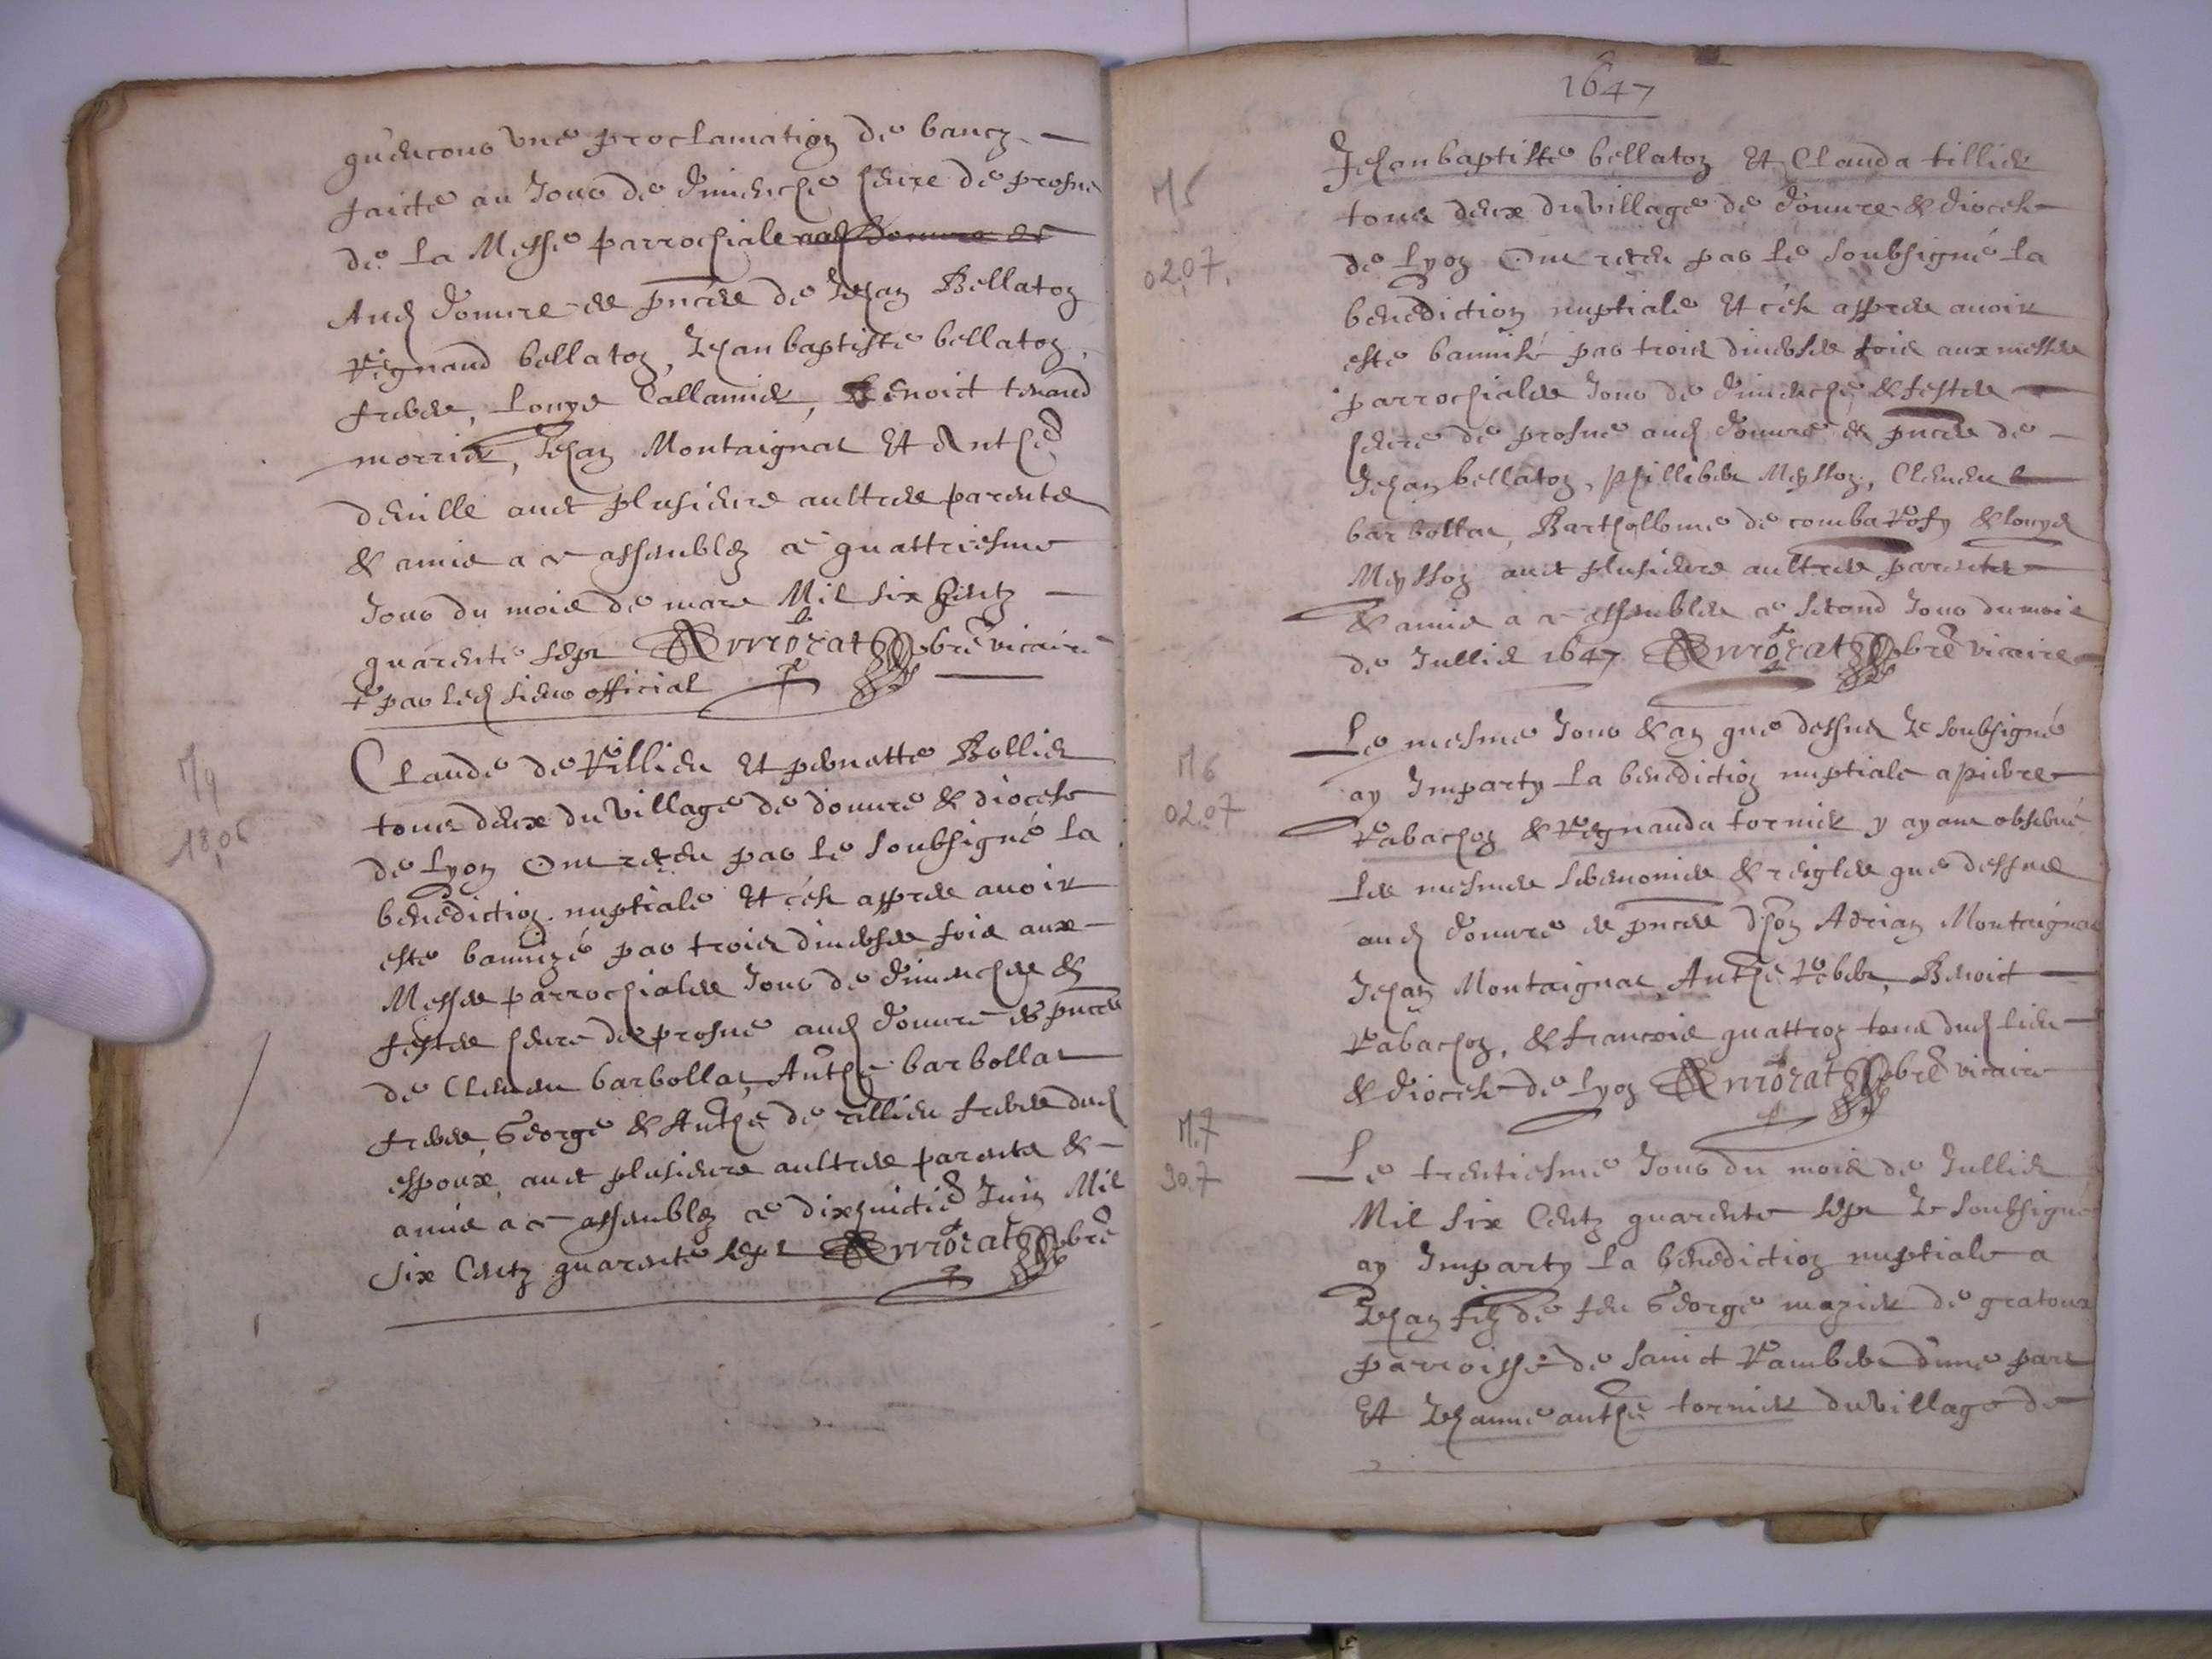 qu'encons une proclamation de bancz
faicte au Jour de dimenche heure de prosne
de la Messe parrochiale
Aud douvre es pnces de Jehan Bellaton
Reynaud bellaton, Jehan baptiste bellaton
freres, Louys Callamier, Benoict tenand
morrier, Jehan Montaignat Et Anthe
deville avec plusieurs aultres parents
& amis a ce assemblez ce quattriesme
Jour du mois de mars Mil six Centz
quarente sept Morat pbre vicaire
& par led sieur official
M4
18.06
Claude de Rillieu Et pernette Bollier
tous deux du village de douvre & diocese
de Lyon Ont receu par le soubsigné la
benediction nuptiale Et ce apres avoir
este bannizé par trois diverses fois aux
Messes parrochiales Jour de dimenches &
festes heure de prosne aud douvre es pnces
de Clement barbollat, Anthe barbollat
freres, George & Anthe de rillieu freres dud
espoux, avec plusieurs aultres parents &
amis a ce assemblez ce dixhuictie Juin Mil
six Centz quarente sept Morat pbre
1647
M5
02.07.
Jehan baptiste bellaton Et Clauda tillier
tous deux du village de douvre & diocese
de Lyon Ont receu par le soubsigné la
benediction nuptiale Et ce apres avoir
este bannisé par trois diverses fois aux messes
parrochiales Jour de dimenche & festes
heure de prosne aud douvre es pnces de
Jehan bellaton, phillibert Meysson, Clement
barbollat, Barthollome de comba & louys
Meysson avec plusieurs aultres parents
& amis a ce assembles ce second Jour du mois
de Jullie 1647 Morat pbre vicaire
M6
02.07
Le mesme Jour & an que dessus Je soubsigné
ay Imparty la benediction nuptiale a pierre
Rabachon & Reynauda tornier y ayant observé
les mesmes seremonies & reigles que dessus
aud douvre es pnces dhon Adrian Montaignat
Jehan Montaignat, Anthe Benoict
Rabachon, & francois quattron tous dud lieu
& diocese de Lyon Morat pbre vicaire
M.7
30.7
Le trentiesme Jour du mois de Jullie
Mil six Centz quarente sept Je soubsigné
ay Imparty la benediction nuptiale a
Jehan filz de feu George mazier de gratoux
parroisse de sainct Rambert d'une part
Et Jehanne anthe tornier du village de